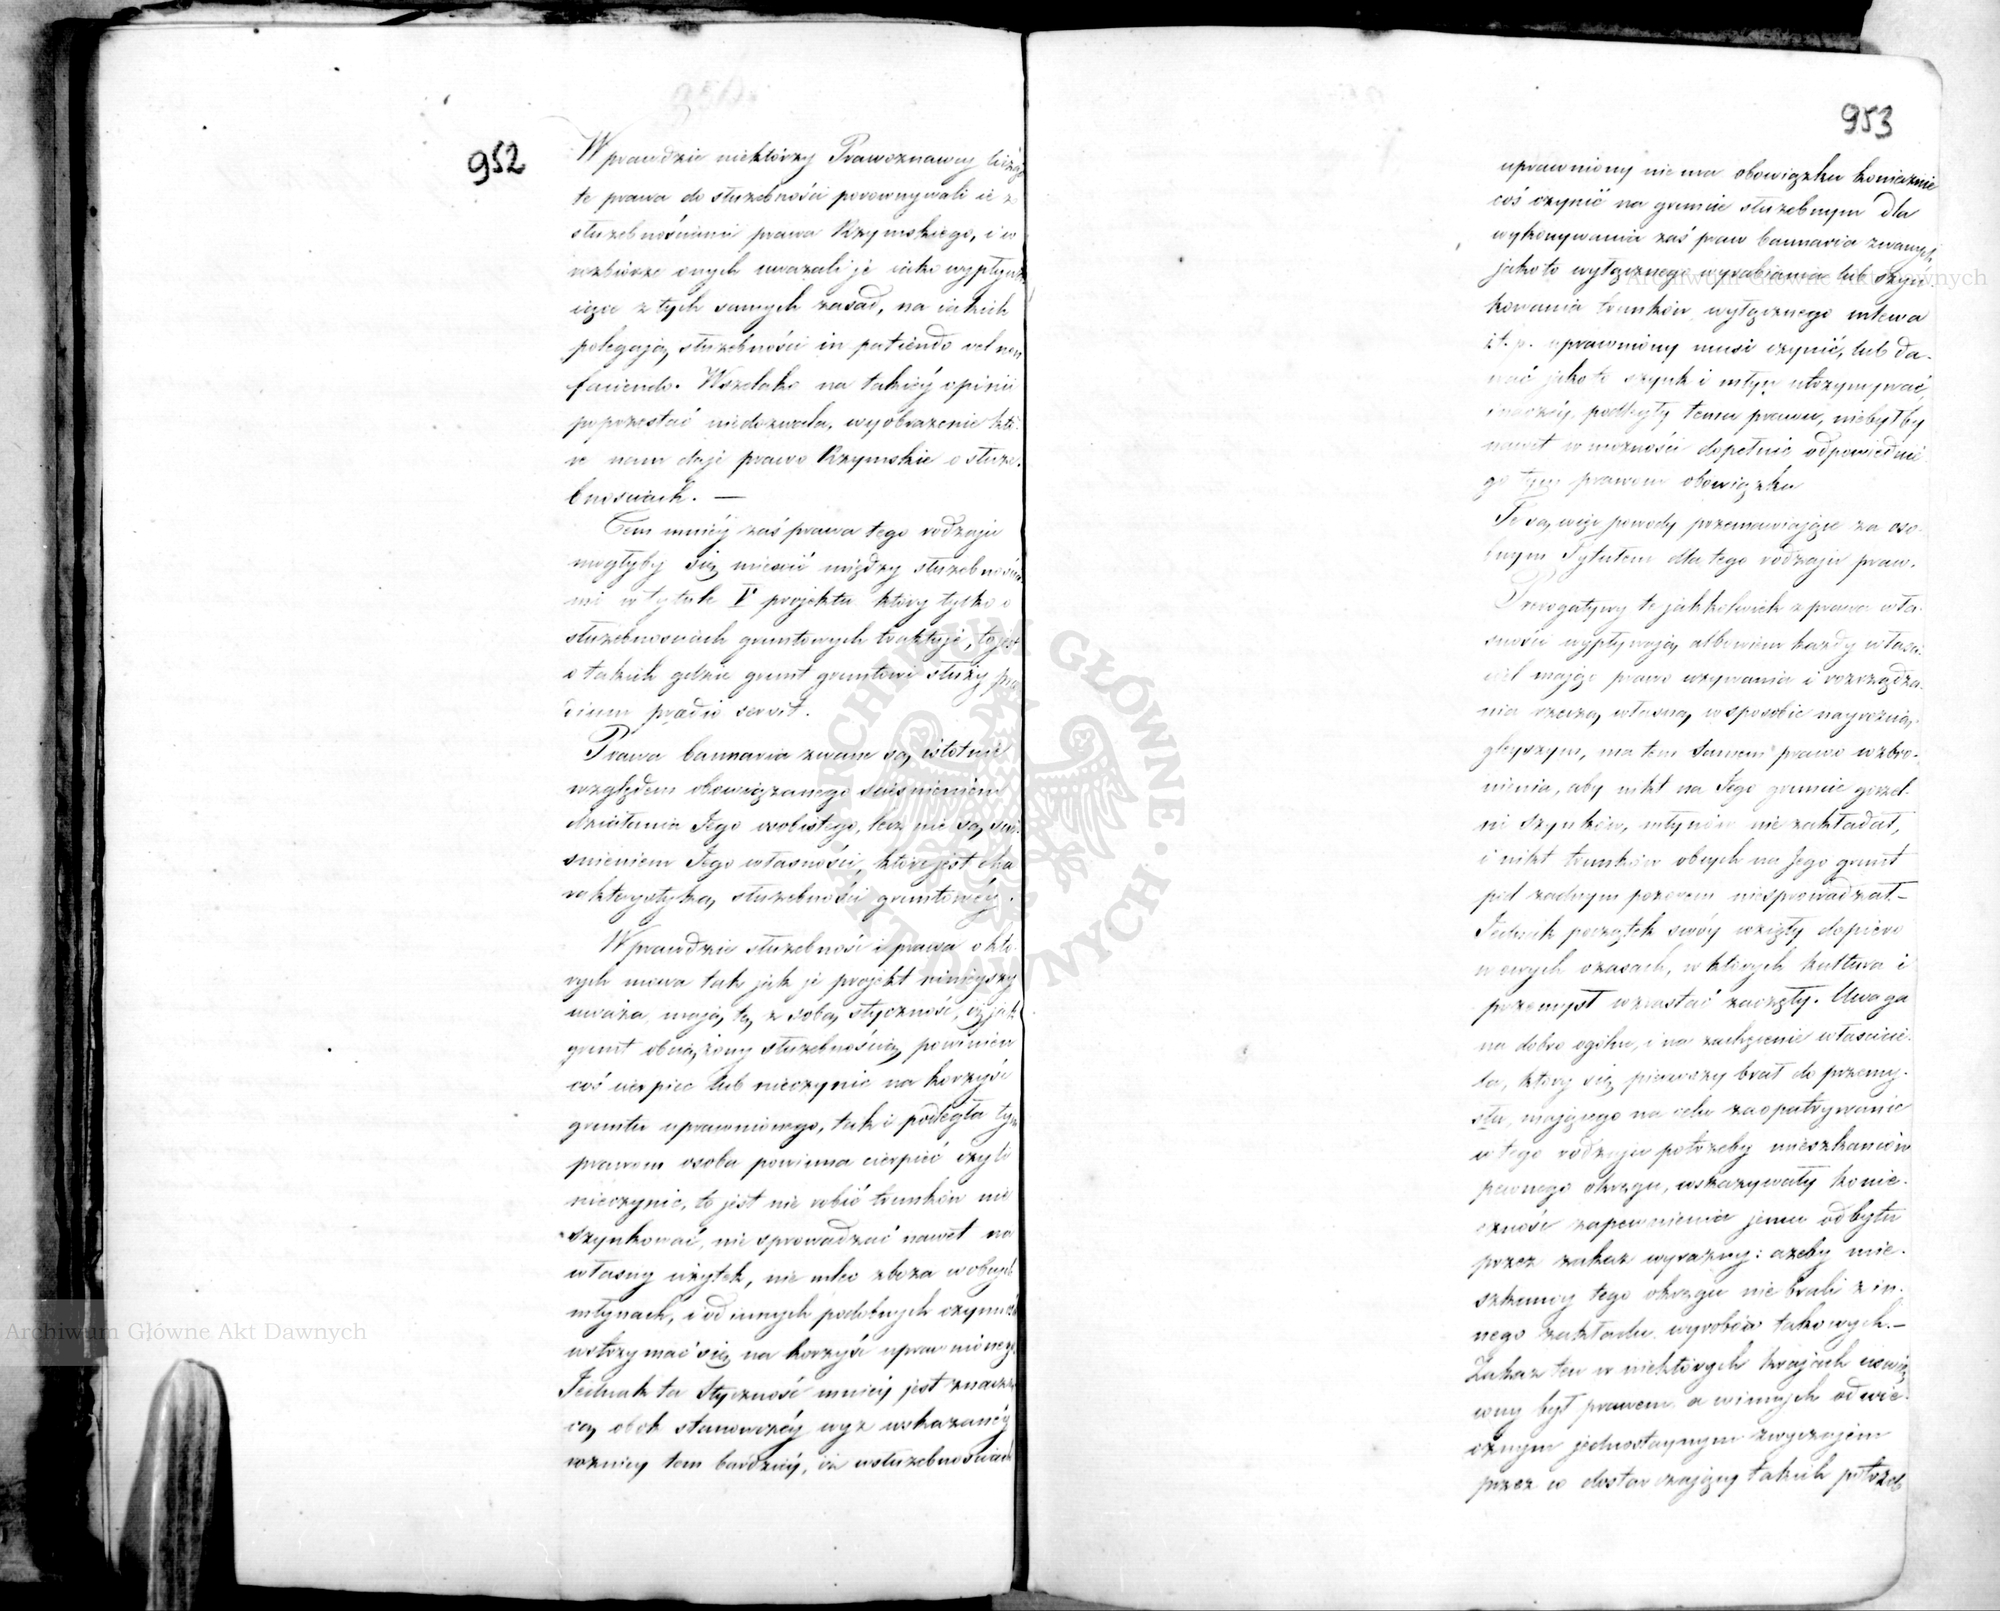 952
Wprawdzie niektórzy Prawoznawcy licząc
te prawa do służebności porownywali ie z
służebnościami prawa Rzymskiego, i w
wzbiorze onych uważali je iako wypływa
iące z tych samych zasad, na iakich
polegają służebności in patiendo vel non
faciendo. Wszelako na takiéy opinii
poprzestać niedozwala, wyobrażenie któ-
re nam daje prawo Rzymskie o służe-
bnościach. —
Tem mniéy zaś prawa tego rodzaju
mogłyby się mieścić między służebnościa
mi w tytule I° projektu który tylko o
służebnościach gruntowych traktuje, to jest
o takich gdzie grunt gruntowi służy præ
dium prædio servit.
Prawa bannaria zwane są istotnie
względem obowiązanego ścieśnieniem
działania Jego osobistego, lecz nie są ście
śnieniem Jego własności, które jest cha
rakterystyką służebności gruntowéy.
Wprawdzie służebności i prawa o któ
rych mowa tak jak je projekt ninieyszy
uważa, mają tę z sobą styczność, iż jak
grunt obciążony służebnością powinien
coś cierpieć lub nieczynić na korzyść
gruntu uprawnionego, tak i podległa tym
prawom osoba powinna cierpieć czyli
nieczynić, to jest nie robić trunków nie
szynkować, nie sprowadzać nawet na
własny użytek, nie mleć zboża w obcych
młynach, i od innych podobnych czynności
wstrzymać się na korzyść uprawnionego.
Jednak ta styczność mniéy jest znaczą
cą obok stanowczéy wyż wskazanéy
różnicy tem bardziéy, iż w służebnościach
953
uprawniony nie ma obowiązku koniecznie
coś czynić na gruncie służebnym dla
wykonywania zaś praw bannaria zwanych,
jakoto wyłącznego wyrabiania lub szyn
kowania trunków wyłącznego mlewa
i t. p. uprawniony musi czynić, lub da-
wać jakoto szynk i młyn utrzymywać,
inaczéy, podległy temu prawu, niebyłby
nawet w możności dopełnić odpowiednie
go tym prawom obowiązku
Te są więc powody przemawiające za oso-
bnym Tytułem dla tego rodzaju praw.
Prerogatywy te jakkolwiek z prawa wła-
sności wypływają, albowiem każdy właści-
ciel mając prawo używania i rozrządza-
nia rzeczą własną w sposobie nayrozcią-
gleyszym, ma tem samem prawo wzbro-
nienia, aby nikt na Jego gruncie gorzel-
ni szynków, młynów nie zakładał,
i nikt trunków obcych na Jego grunt
pod żadnym pozorem niesprowadzał. —
Jednak początek swóy wzięły dopiero
w owych czasach, w których kultura i
przemysł wzrastać zaczęły. Uwaga
na dobro ogółu, i na zachęcenie właścicie-
la, który się pierwszy brał do przemy-
słu, mającego na celu zaopatrywanie
w tego rodzaju potrzeby mieszkańców
pewnego okręgu, wskazywały konie-
czność zapewnienia jemu odbytu
przez zakaz wyraźny: ażeby mie-
szkańcy tego okręgu nie brali z in-
nego zakładu wyrobów takowych. —
Zakaz ten w niektórych krajach
był prawem a w innych odwie-
cznym jednostaynym zwyczajem
przez w dostarczającą takich potrzeb
Archiwum Główne Akt Dawnych
Archiwum Główne Akt Dawnych
ARCHIWUM GŁÓWNE AKT DAWNYCH